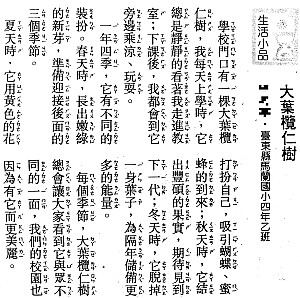 生活小品
大葉欖仁樹
臺東縣馬蘭國小四年乙班
學校門口有一棵大葉欖
仁樹，我每天上學時，它
總是靜靜的看著我走進教
室；下課後，我都會到它
旁邊乘涼、玩耍。
一年四季，它有不同的
裝扮。春天時，長出嫩綠
的新芽，準備迎接後面的
三個季節。
夏天時，它用黃色的花
打扮自己，吸引蝴蝶、蜜
蜂的到來；秋天時，它結
出豐碩的果實，期待見到
下一代；冬天時，它脫掉
一身葉子，為隔年儲備更
多的能量。
每個季節，大葉欖仁樹
總會讓大家看到它與眾不
同的一面，我們的校園也
因為有它而更美麗。